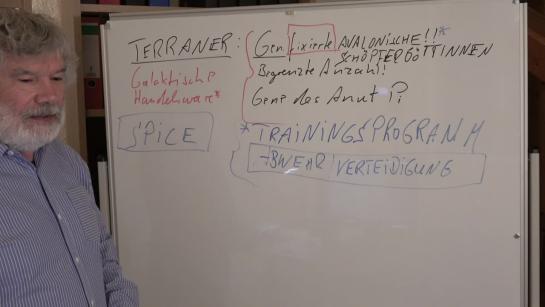 TERRANER:
Galaktische
Handelsware*
SPICE
Gen.fixierte AVALONISCHE!!*
SCHÖPFERGÖTTINNEN
Begrenzte Anzahl!
Gene des Anut ?!
* TRAININGSPROGRAMM
ABWEHR/VERTEIDIGUNG